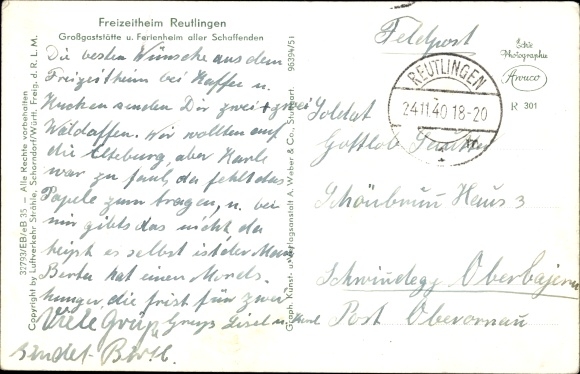 Freizeitheim Reutlingen
Großgaststätte u. Ferienheim aller Schaffenden
Die besten Wünsche aus dem
Freizeitheim bei Kaffee u.
Kuchen senden Dir zwei + zwei
Waldaffen. Wir wollten auf
die
aber Karl
war zu faul, da fehlt das
zum tragen, u. bei
mir gibts das nicht da
heißt es selbst ist der Mann
Berta hat einen Mords-
hunger, die frist für zwei
Viele Grüße
Gruß Liesel u. Karl
sendet Berth.
32793/EB/eB 35 — Alle Rechte vorbehalten
Copyright by Luftverkehr Strähle, Schorndorf/Württ. Freig. d. R. L. M.
Graph. Kunst- u. Verlagsanstalt A. Weber & Co., Stuttgart 96394/51
Feldpost
REUTLINGEN
24.11.40 18-20
Echte
Photographie
Aweco
R 301
Soldat
Gottlob
Schönbrunn Haus 3
Schwindegg Oberbayern
Post Obernau